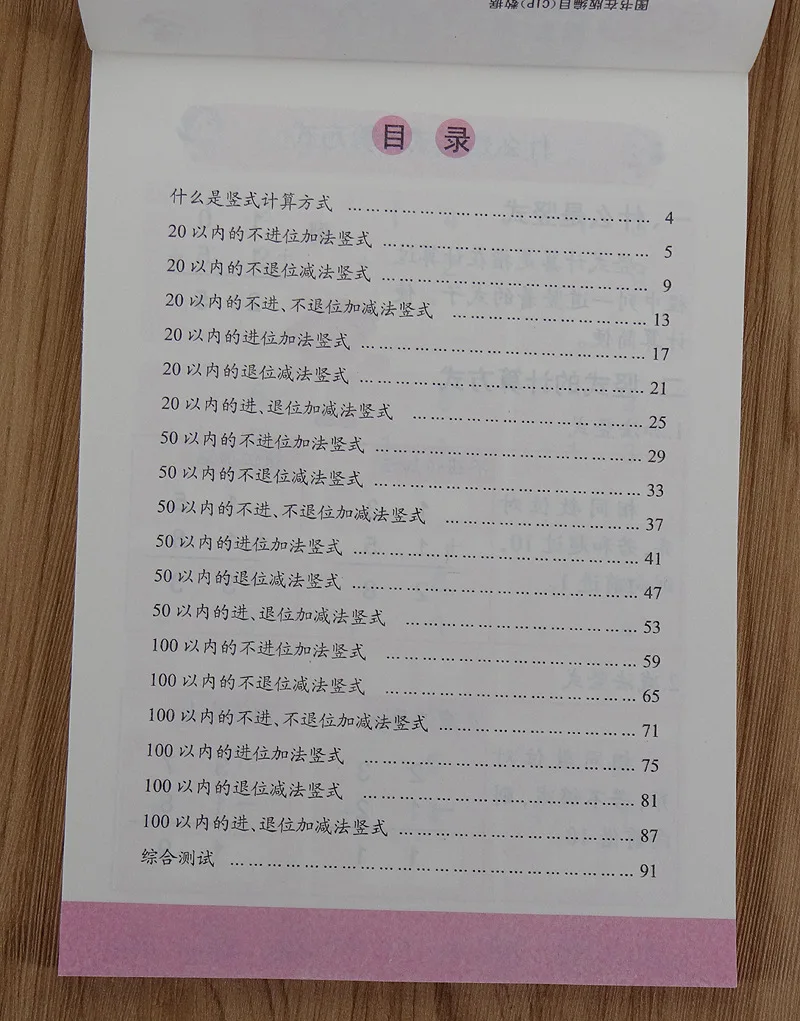 图书在版编目(CIP)数据
目 录
什么是竖式计算方式 ………………………………… 4
20 以内的不进位加法竖式 ………………………………… 5
20 以内的不退位减法竖式 ………………………………… 9
20 以内的不进、不退位加减法竖式 ………………………… 13
20 以内的进位加法竖式 ………………………………… 17
20 以内的退位减法竖式 ………………………………… 21
20 以内的进、退位加减法竖式 ………………………… 25
50 以内的不进位加法竖式 ………………………………… 29
50 以内的不退位减法竖式 ………………………………… 33
50 以内的不进、不退位加减法竖式 ………………………… 37
50 以内的进位加法竖式 ………………………………… 41
50 以内的退位减法竖式 ………………………………… 47
50 以内的进、退位加减法竖式 ………………………… 53
100 以内的不进位加法竖式 ………………………… 59
100 以内的不退位减法竖式 ………………………… 65
100 以内的不进、不退位加减法竖式 ………………………… 71
100 以内的进位加法竖式 ………………………………… 75
100 以内的退位减法竖式 ………………………………… 81
100 以内的进、退位加减法竖式 ………………………… 87
综合测试 ………………………………………… 91